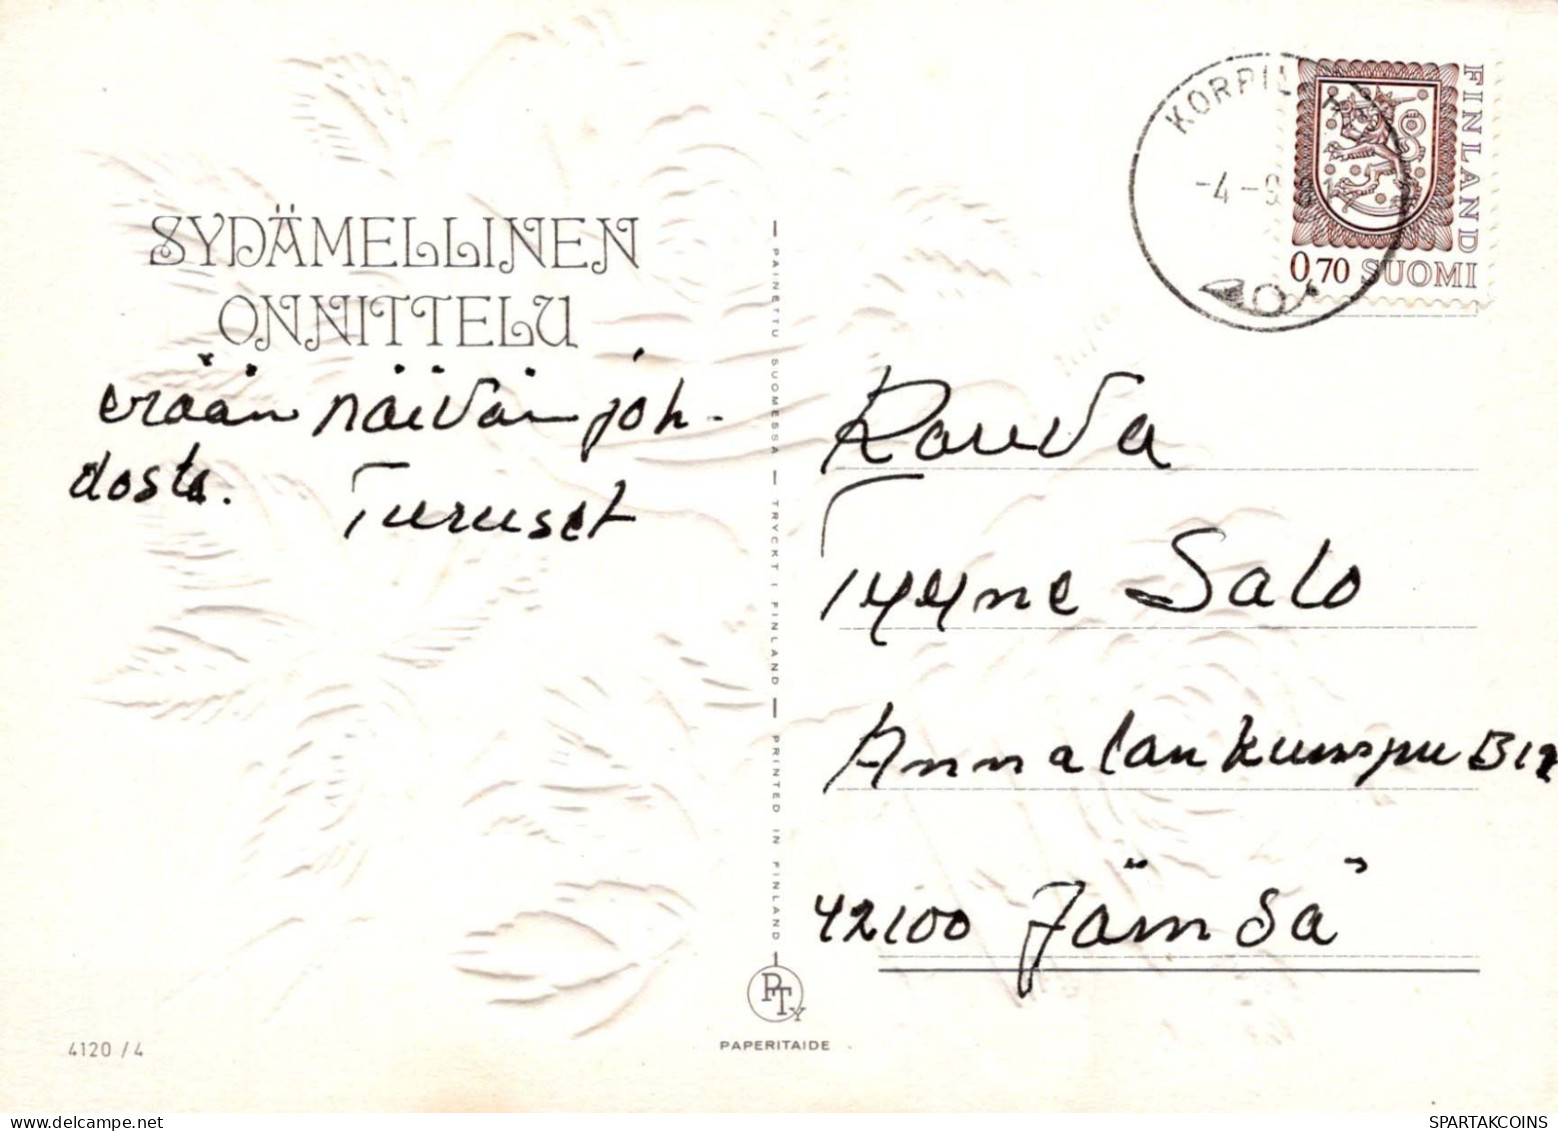 SYDÄMELLINEN
ONNITTELU
erään näivän joh-
dosta.
Turuset
PAINETTU SUOMESSA — TRYCKT I FINLAND — PRINTED IN FINLAND
FINLAND
0,70 SUOMI
-4-9
Rouva
Tyyne Salo
Annalankumpu
42100 Jämsä
PTy
PAPERITAIDE
4120 / 4
SPARTAKCOINS